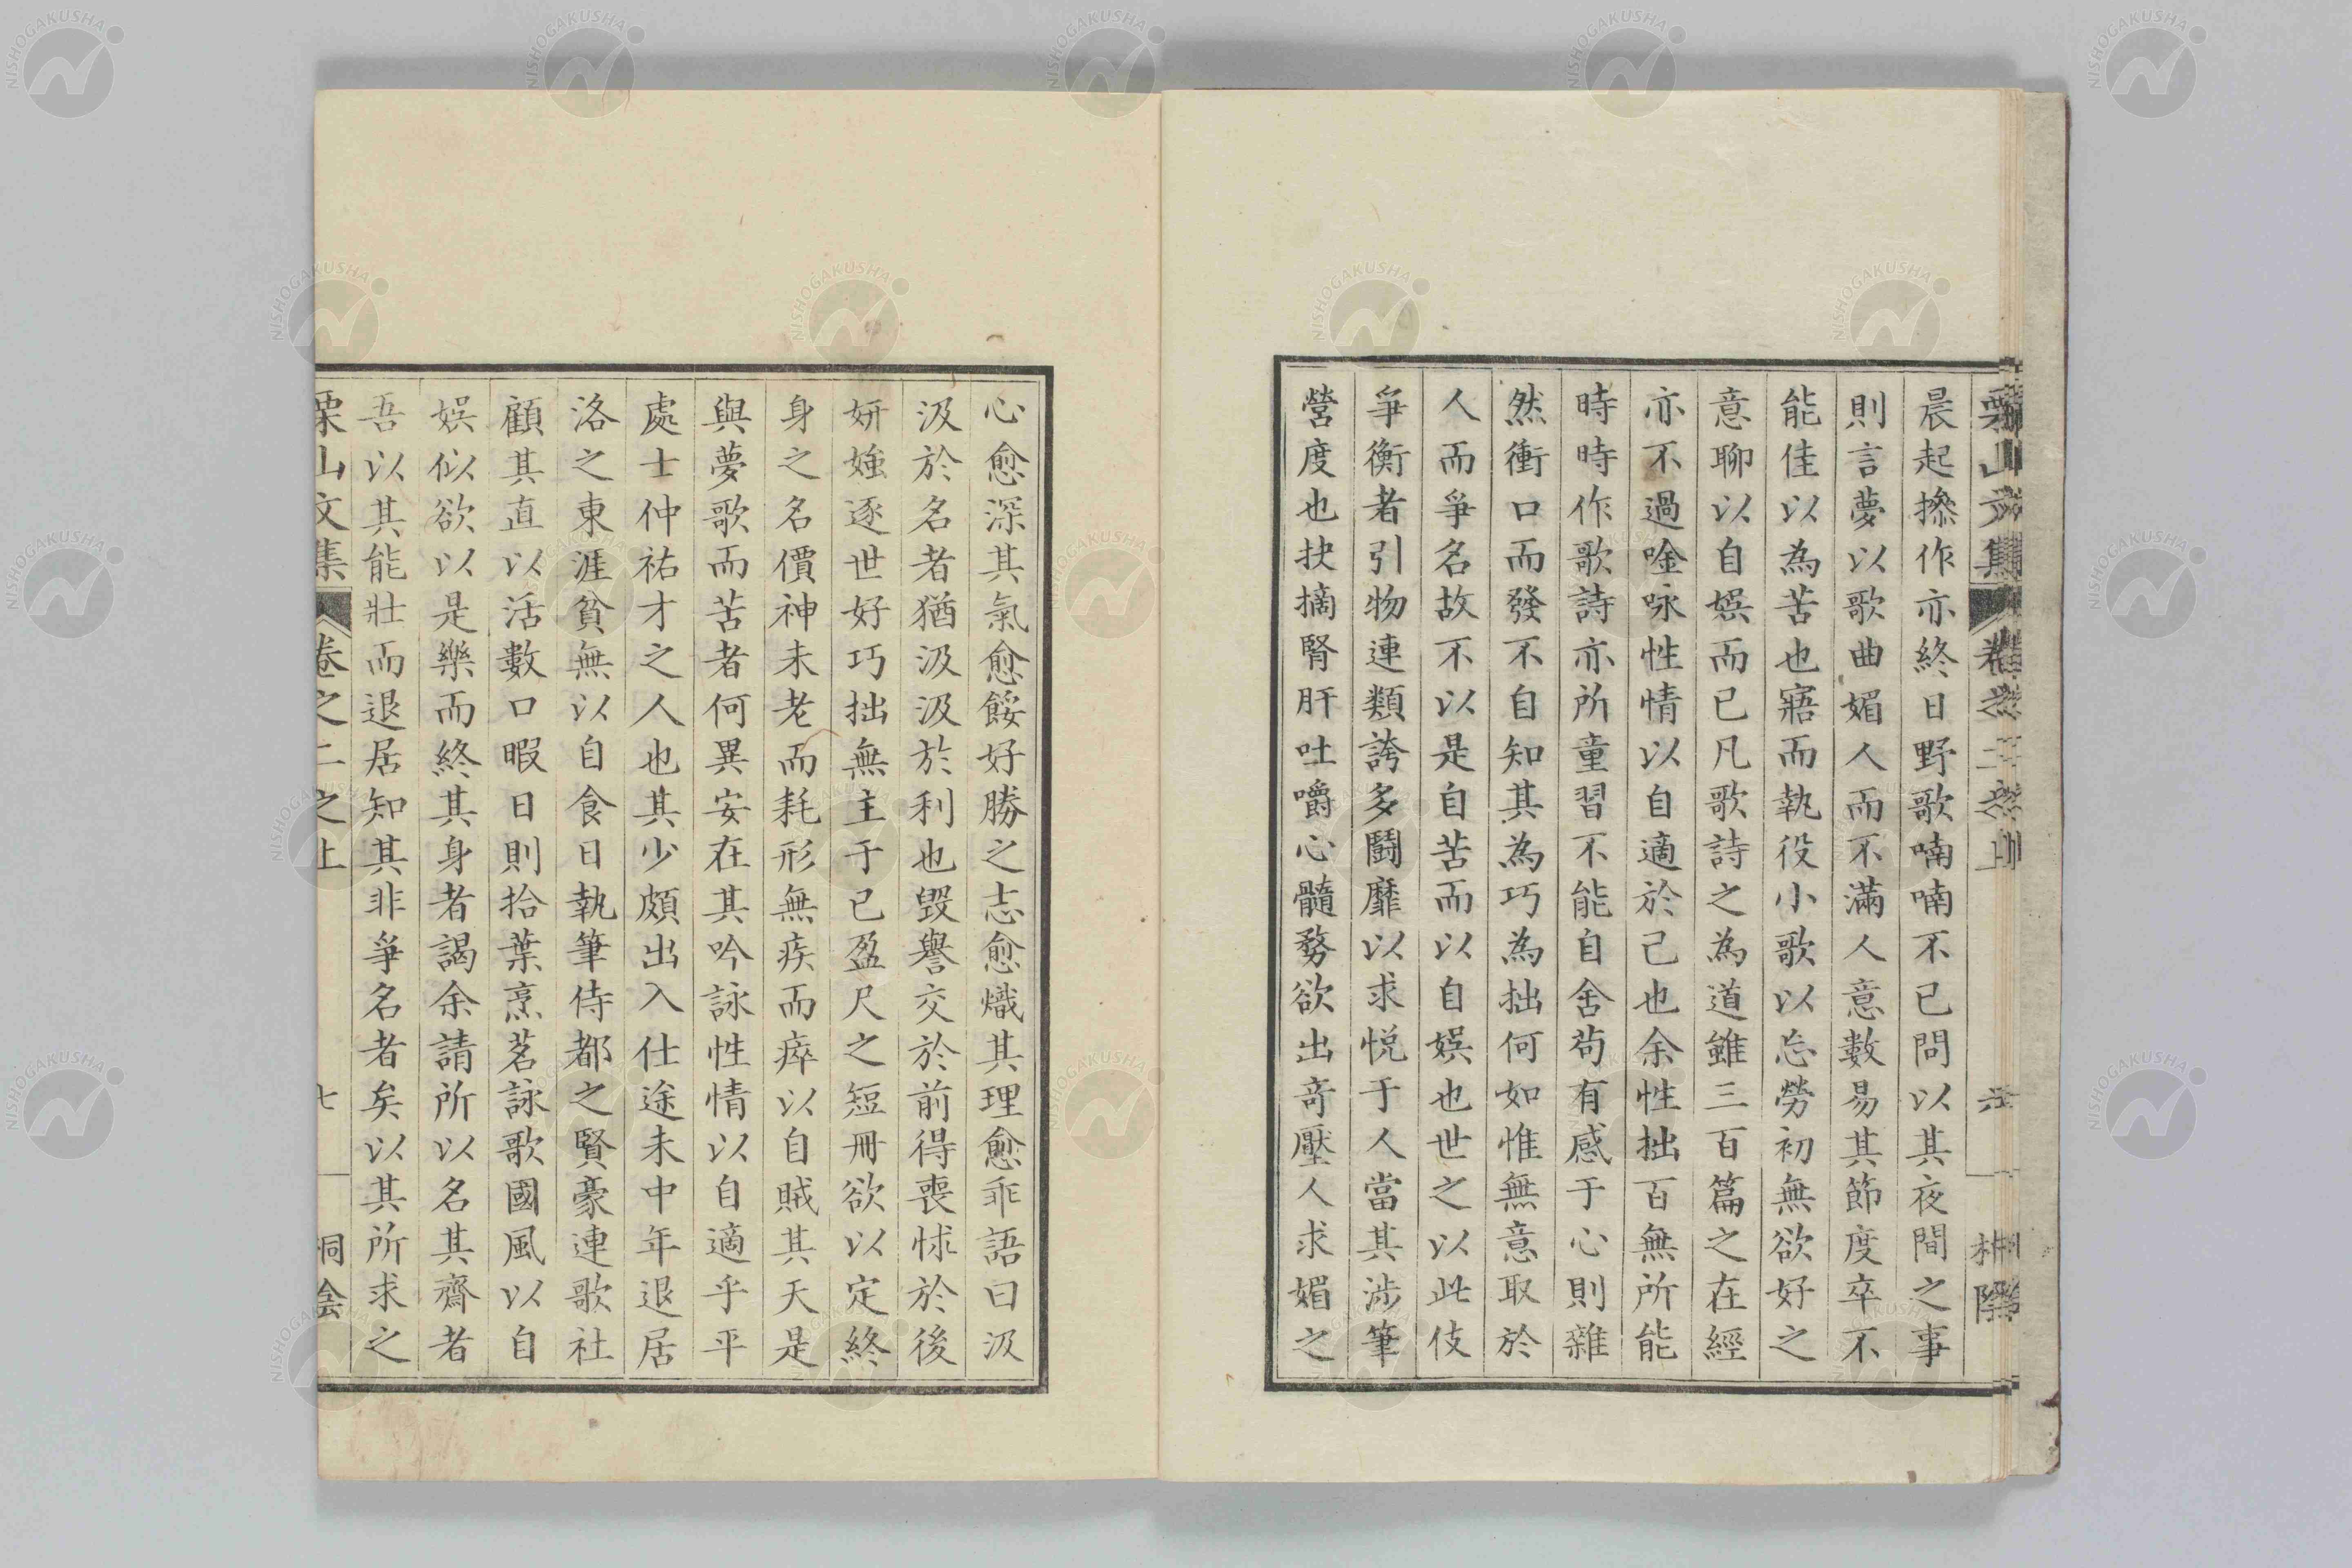 栗山文集 卷之二之上 六 桐陰
晨起操作亦終日野歌喃喃不已問以其夜間之事
則言夢以歌曲媚人而不滿人意數易其節度卒不
能佳以為苦也寤而執役小歌以忘勞初無欲好之
意聊以自娯而已凡歌詩之為道雖三百篇之在經
亦不過唫咏性情以自適於己也余性拙百無所能
時時作歌詩亦所童習不能自舍苟有感于心則雜
然衝口而發不自知其為巧為拙何如惟無意取於
人而爭名故不以是自苦而以自娯也世之以此伎
爭衡者引物連類誇多鬪靡以求悅于人當其涉筆
營度也抉摘腎肝吐嚼心髓務欲出奇壓人求媚之
心愈深其氣愈餒好勝之志愈熾其理愈乖語曰汲
汲於名者猶汲汲於利也毀譽交於前得喪怵於後
妍媸逐世好巧拙無主于己盈尺之短冊欲以定終
身之名價神未老而耗形無疾而瘁以自賊其天是
與夢歌而苦者何異安在其吟詠性情以自適乎平
處士仲祐才之人也其少頗出入仕途未中年退居
洛之東涯貧無以自食日執筆侍都之賢豪連歌社
顧其直以活數口暇日則拾葉烹茗詠歌國風以自
娯似欲以是樂而終其身者謁余請所以名其齊者
吾以其能壯而退居知其非爭名者矣以其所求之
栗山文集 卷之二之上 七 桐陰
NISHOGAKUSHA